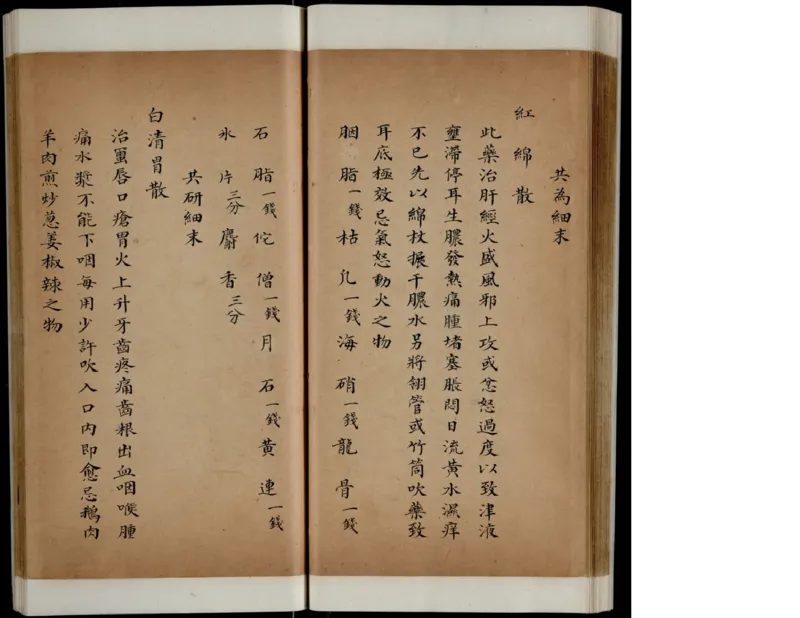 共為細末
紅綿散
此藥治肝經火盛風邪上攻或忿怒過度以致津液
壅滯停耳生膿發熱痛腫堵塞脹悶日流黃水濕痒
不已先以綿杖搌干膿水另將翎管或竹筒吹藥致
耳底極效忌氣怒動火之物
胭脂一錢枯凡一錢海硝一錢龍骨一錢
石脂一錢佗僧一錢月石一錢黃連一錢
氷片三分麝香三分
共研細末
白清胃散
治蠒唇口瘡胃火上升牙齒疼痛齒根出血咽喉腫
痛水漿不能下咽每用少許吹入口內即愈忌鵝肉
羊肉煎炒葱姜椒辣之物